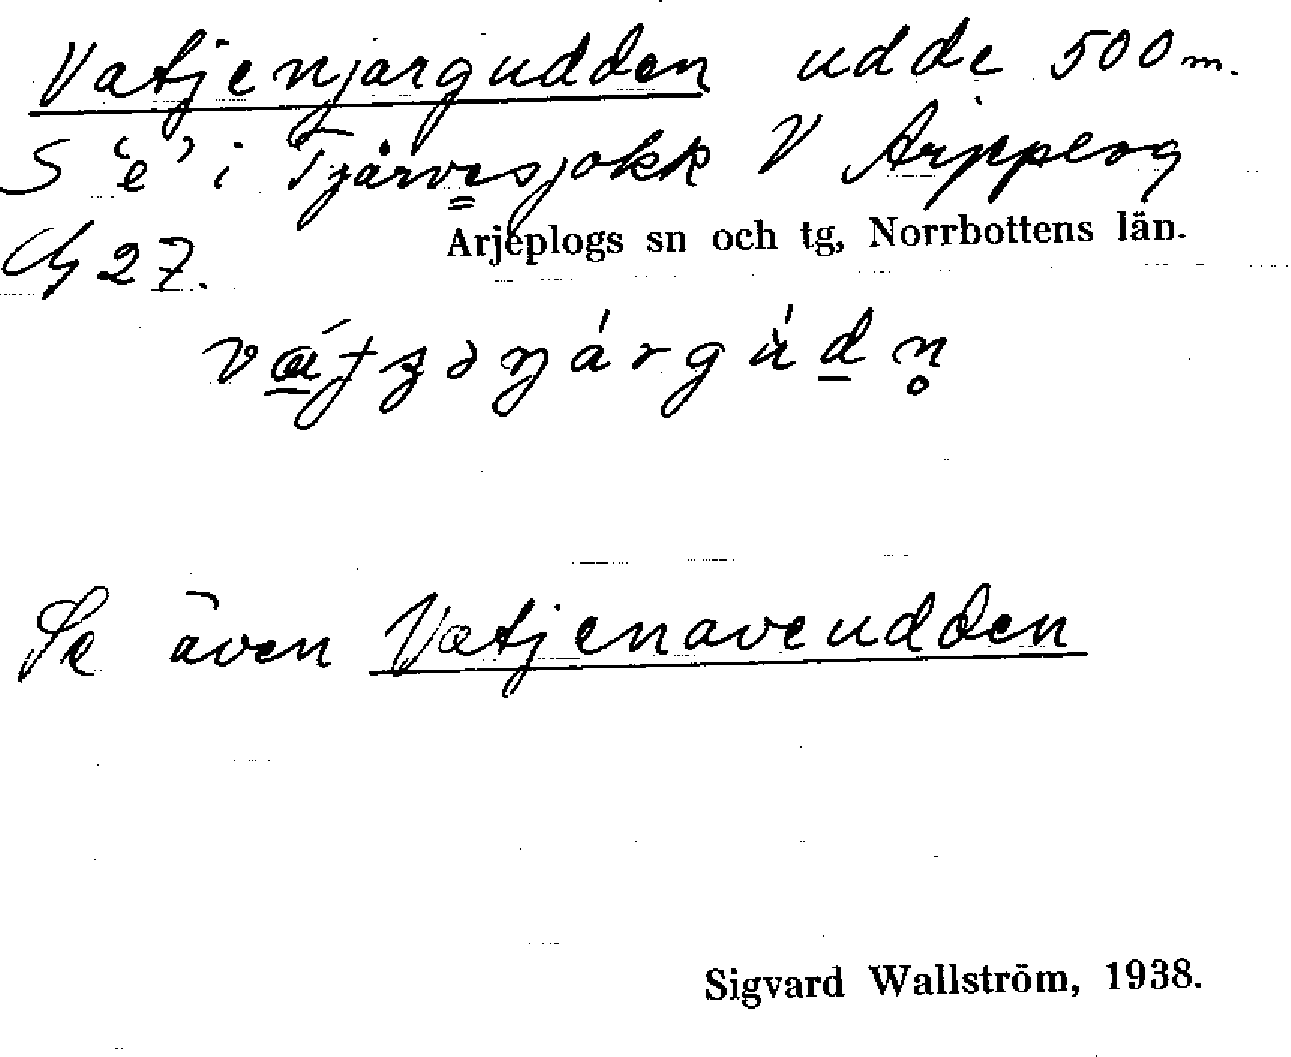 Vatjenjargudden udde 500 m.
S 'e' i Tjårvesjokk V Arjeplog
27.
Arjeplogs sn och tg, Norrbottens län.
Se även Vatjenaveudden
Sigvard Wallström, 1938.